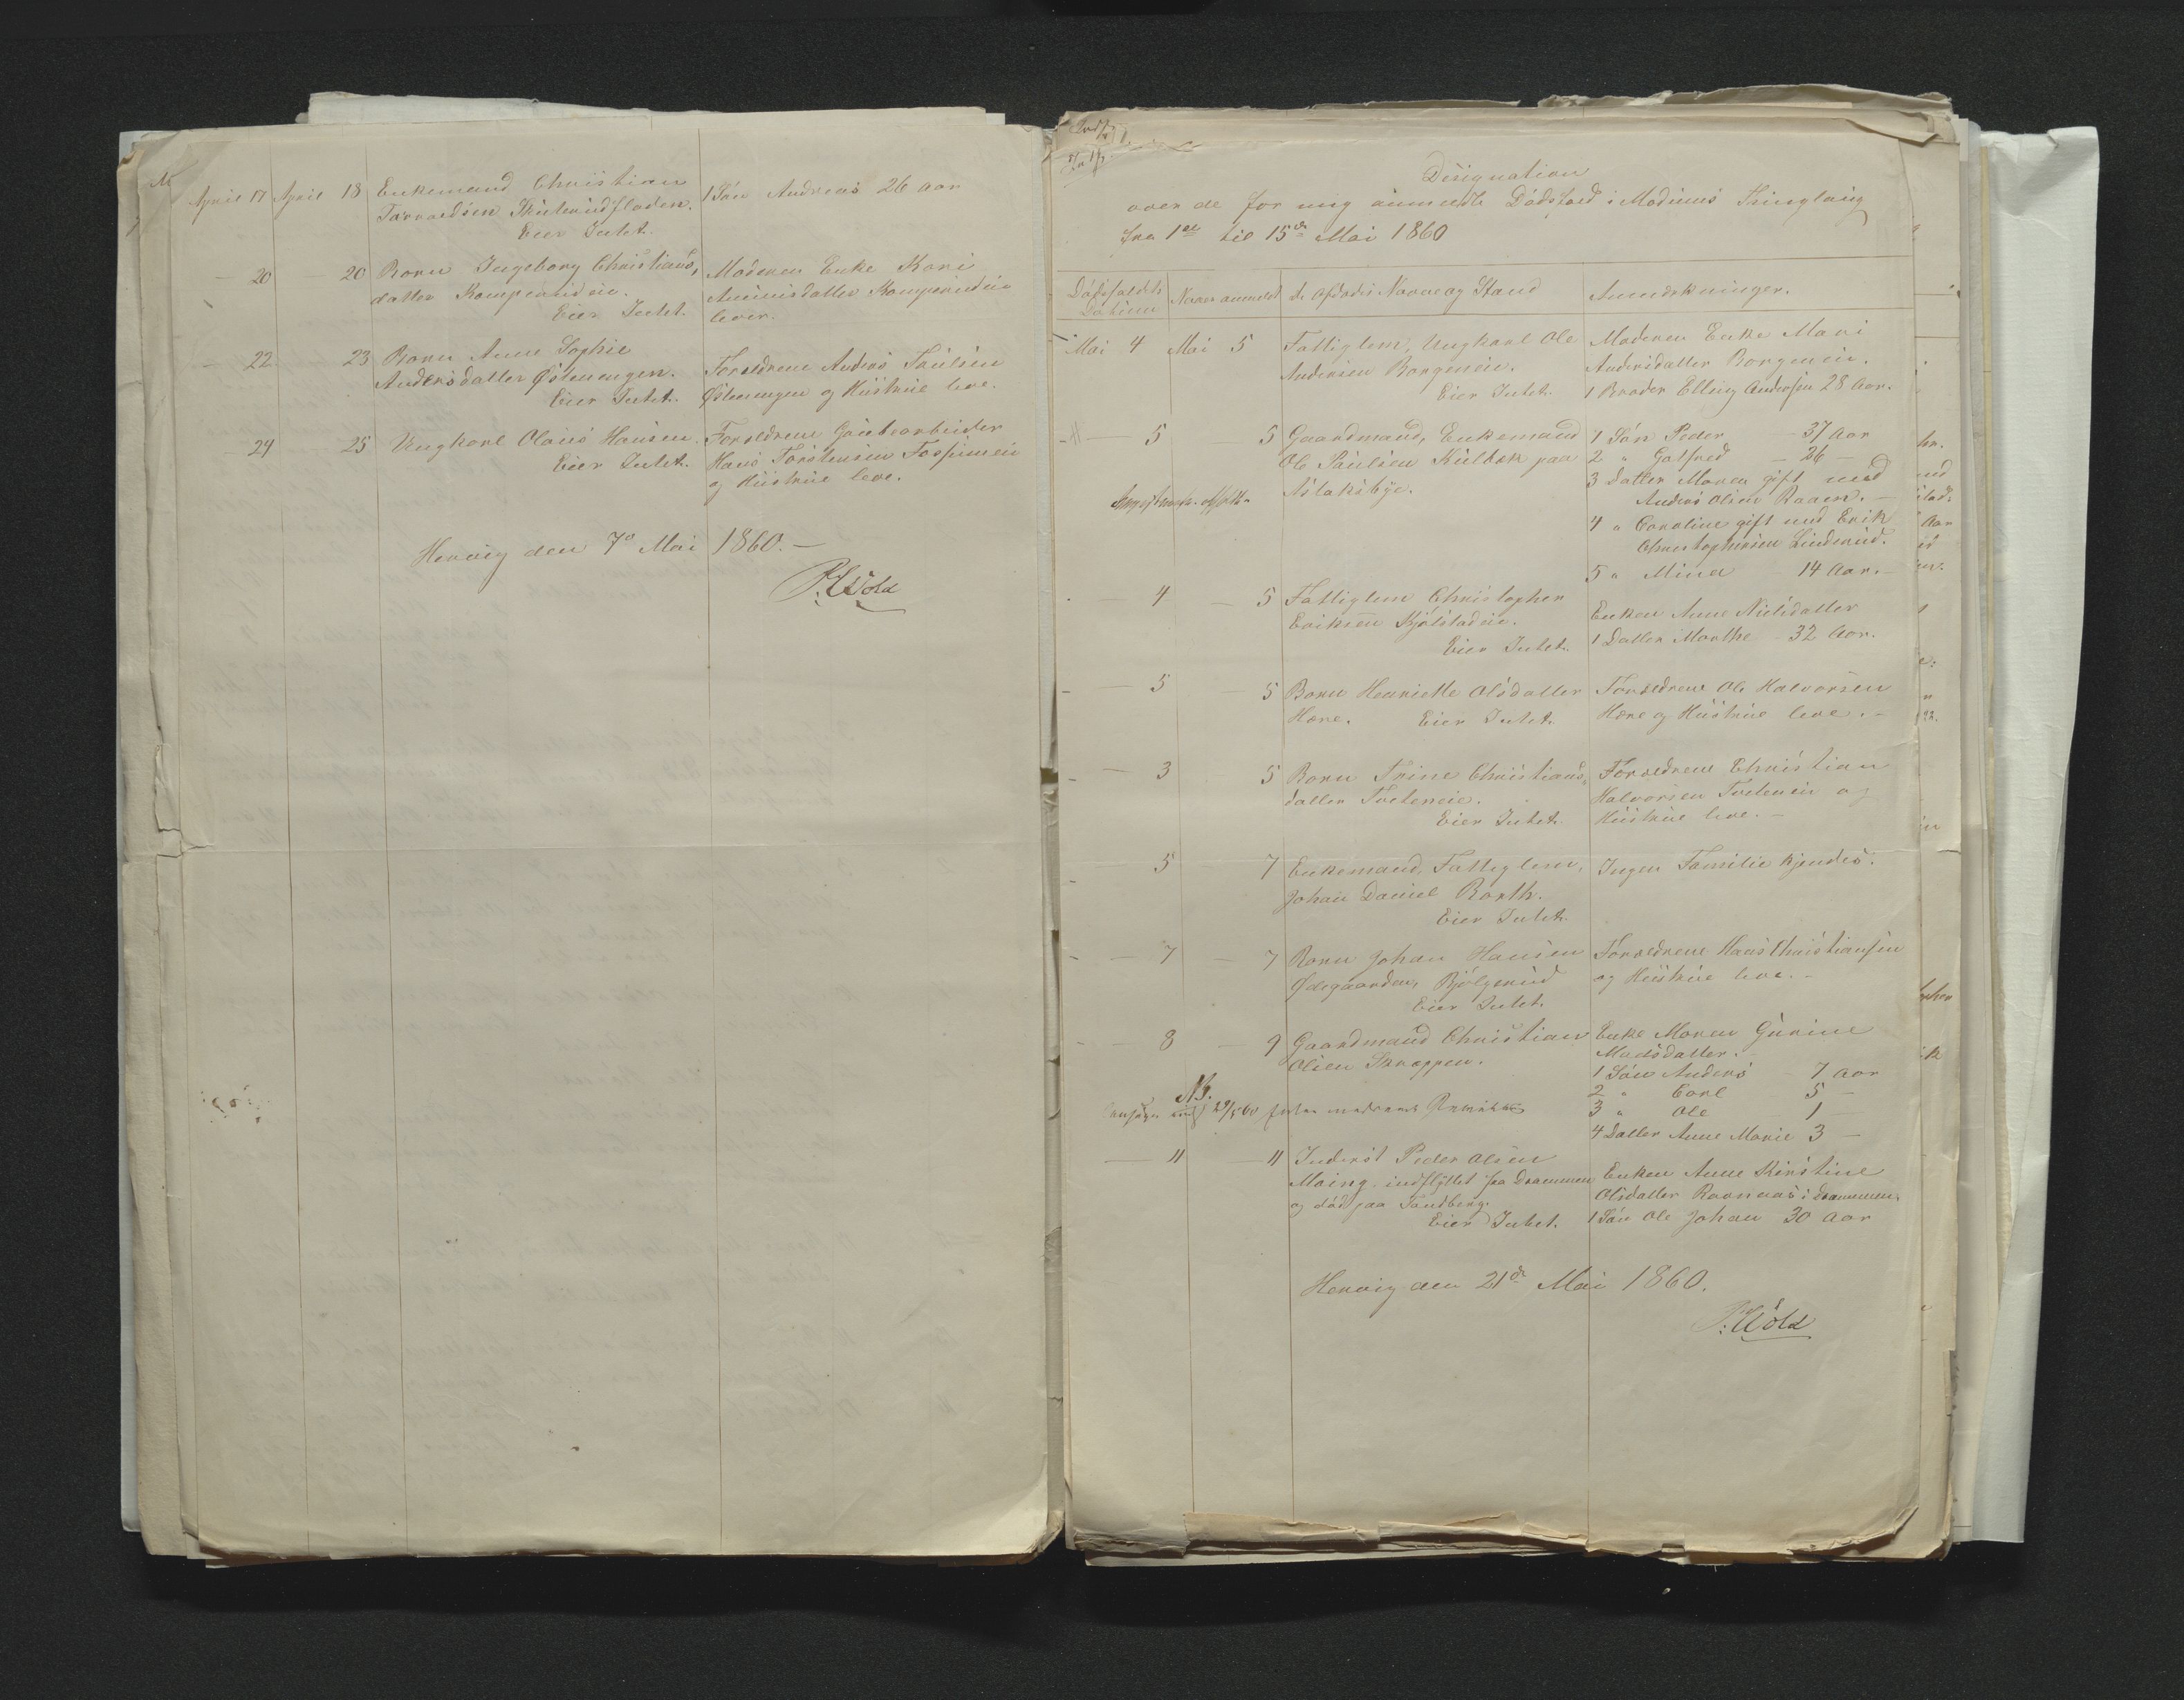 April 17 April 18 Enkemand Christian 1 Søn Andreas 26 Aar
Eier Intet.
20 20 Barn Ingeborg Christians, Moderen Enke Kari
datter Komperudeie.
Eier Intet. lever.
22 23 Barn Anne Sophie Forældrene Anders Paulsen
Andersdatter Østenengen. Østenengen og Hustrue leve.
Eier Intet.
24 25 Ungkarl Olaus Hansen. Forældrene
Eier Intet. Hans Torstensen
og Hustrue leve.
Hervig den 7de Mai 1860.-
Designation
over de for mig anmeldte Dødsfald i Modums Thinglaug
fra 1ste til 15de Mai 1860
Dødsfaldets Datum Naar anmeldt de Afdødes Navne og Stand Anmærkninger.
Mai 4 Mai 5 Fattiglem, Ungkarl Ole Moderen Enke Mari
Andersen Borgeneie. Andersdatter Borgeneie.
Eier Intet. 1 Broder Elling Andersen 28 Aar.
5 5 Gaardmand, Enkemand 1 Søn Peder - 37 Aar
Ole Paulsen Kulbæk paa 2 " Galfred - 26 -
Aslaksbye. 3 Datter Maren gift med
Anders Olsen Raaen. -
4 " Caroline gift med Erik
Christophersen Linderud.
5 " Mina 14 Aar. -
4 5 Fattiglem Christopher Enken Anne Nielsdatter
Eriksen Kjølstadeie. 1 Datter Marthe - 32 Aar.
Eier Intet.
5 5 Barn Henriette Olsdatter Forældrene Ole Halvorsen
Hære. Eier Intet. Hære og Hustrue leve. -
3 5 Barn Trine Christians- Forældrene Christian
datter Tveteneie. Halvorsen Tveteneie og
Eier Intet. Hustrue leve. -
5 7 Enkemand, Fattiglem, Ingen Familie kjendes.
Johan Daniel Barth.
Eier Intet.
7 7 Barn Johan Hansen Forældrene Hans Christiansen
Ødegaarden, Bjølgerud og Hustrue leve. -
Eier Intet.
8 9 Gaardmand Christian Enke Maren Gurine
Olsen Skrappen. Madsdatter.
1 Søn Anders - 7 Aar
NB. 2 " Carl 5 -
29/5 60 3 " Ole 1
4 Datter Anne Marie 3 -
11 11 Inderst Peder Olsen Enken Anne Kirstine
indflyttet fra Drammen Olsdatter i Drammen.
og død paa Sandberg. 1 Søn Ole Johan 30 Aar
Eier Intet.
Hervig den 21de Mai 1860.